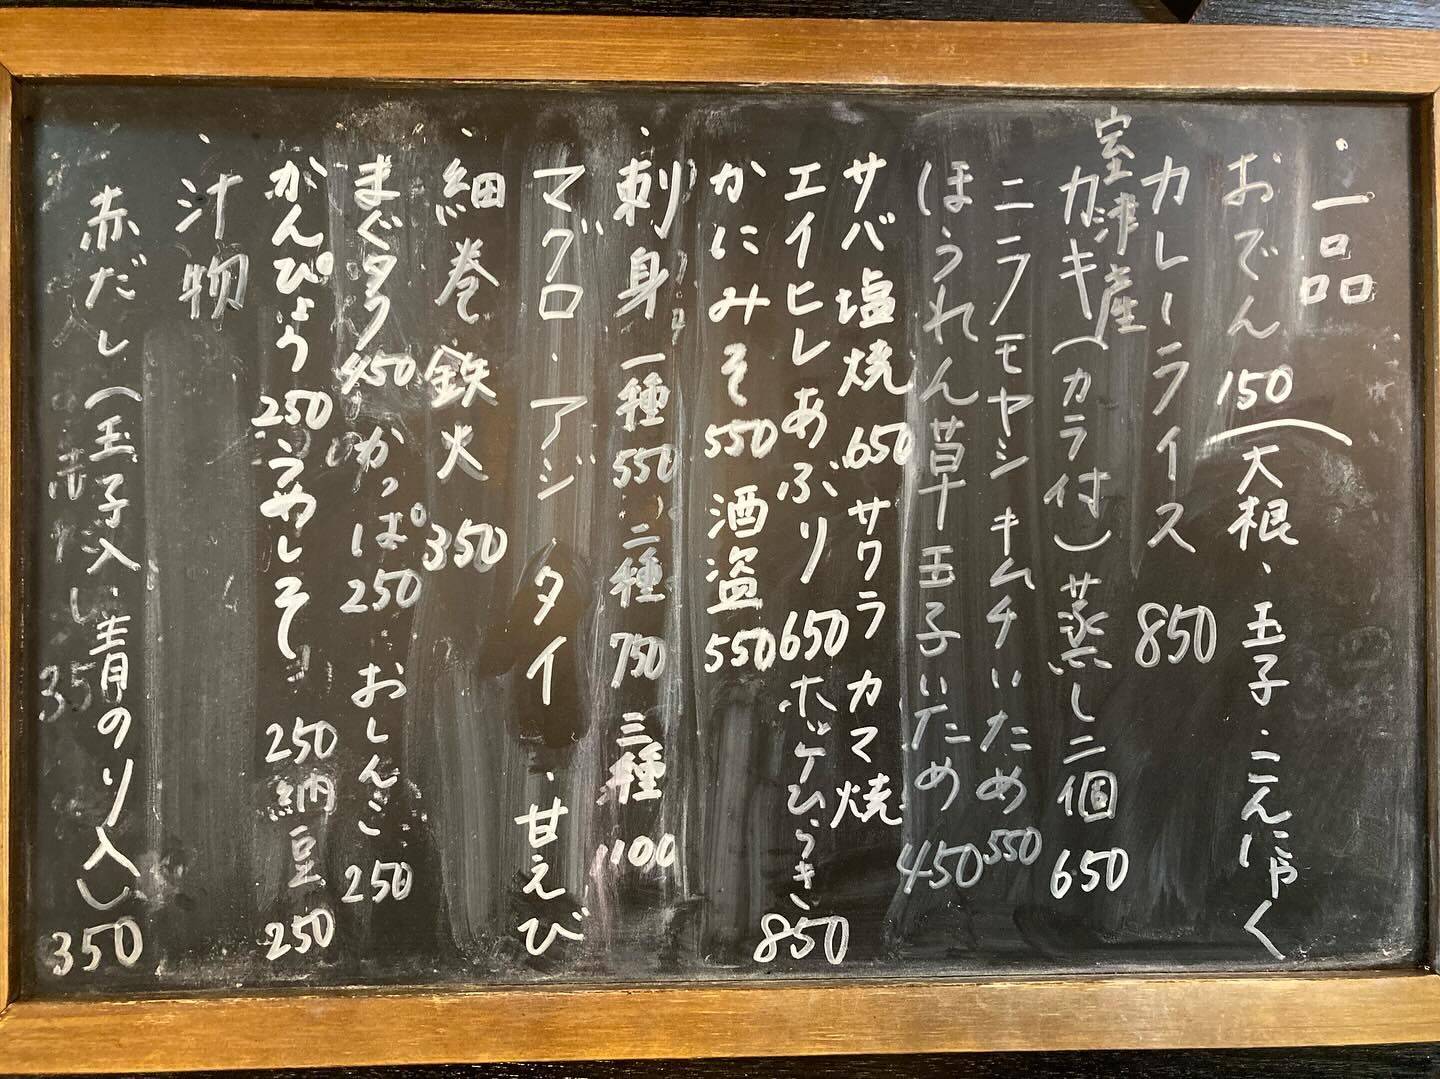 ・一品
おでん 150 (大根、玉子・こんにゃく
カレーライス 850
室津産
カキ(カラ付)蒸し二個 650
ニラモヤシキムチいため 550
ほうれん草玉子いため 450
サバ塩焼 650 サワラカマ焼
エイヒレあぶり 650 ホッケひらき 850
かにみそ 550 酒盗 550
・刺身 一種 550 二種 750 三種 1100
マグロ・アジ タイ・甘えび
・細巻 鉄火 350
まぐタク 450 かっぱ 250 おしんこ 250
かんぴょう 250 うめしそ 250 納豆 250
・汁物
赤だし(玉子入・青のり入) 350